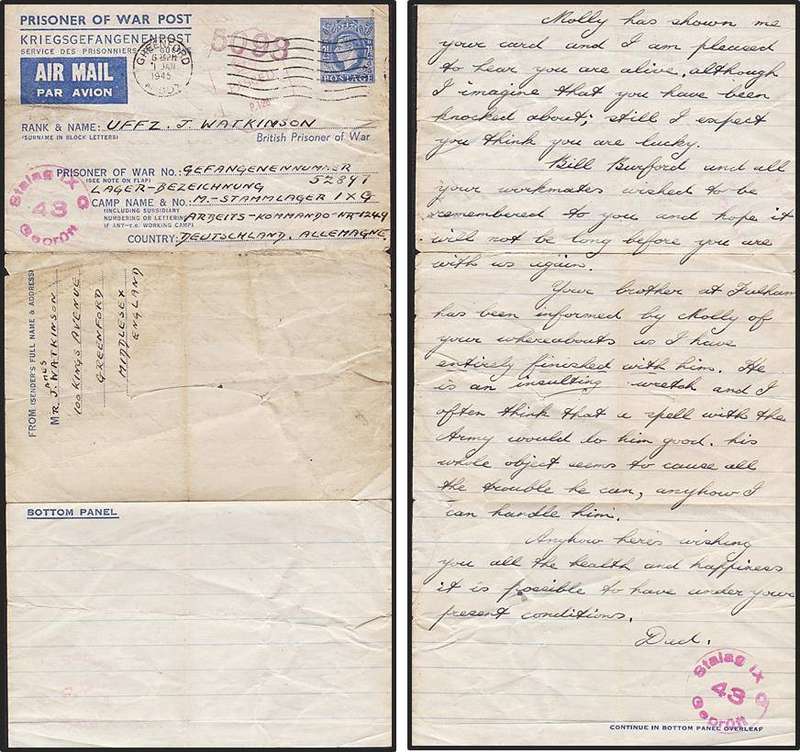 PRISONER OF WAR POST
KRIEGSGEFANGENENPOST
SERVICE DES PRISONNIERS
AIR MAIL
PAR AVION
GREENFORD
1 JAN
1945
5098
POSTAGE
RANK & NAME: UFFZ. J. WATKINSON
(SURNAME IN BLOCK LETTERS) British Prisoner of War
PRISONER OF WAR No.: GEFANGENENNUMMER
(SEE NOTE ON FLAP) 52897
LAGER-BEZEICHNUNG
CAMP NAME & No.: M.-STAMMLAGER IXC
(INCLUDING SUBSIDIARY
NUMBERING OR LETTERING ARBEITS-KOMMANDO-NR-1249
IF ANY—I.E. WORKING CAMP)
COUNTRY: DEUTSCHLAND. ALLEMAGNE.
Stalag IX C
43
Geprüft
FROM (SENDER'S FULL NAME & ADDRESS)
MR. JAMES WATKINSON
100 KINGS AVENUE
GREENFORD
MIDDLESEX
ENGLAND
BOTTOM PANEL
Molly has shown me
your card and I am pleased
to hear you are alive, although
I imagine that you have been
knocked about; still I expect
you think you are lucky.
Bill Burford and all
your workmates wished to be
remembered to you and hope it
will not be long before you are
with us again.
Your brother at Fulham
has been informed by Molly of
your whereabouts as I have
entirely finished with him. He
is an insulting wretch and I
often think that a spell with the
Army would do him good. his
whole object seems to cause all
the trouble he can, anyhow I
can handle him.
Anyhow here's wishing
you all the health and happiness
it is possible to have under your
present conditions.
Dad.
Stalag IX C
43
Geprüft
CONTINUE IN BOTTOM PANEL OVERLEAF